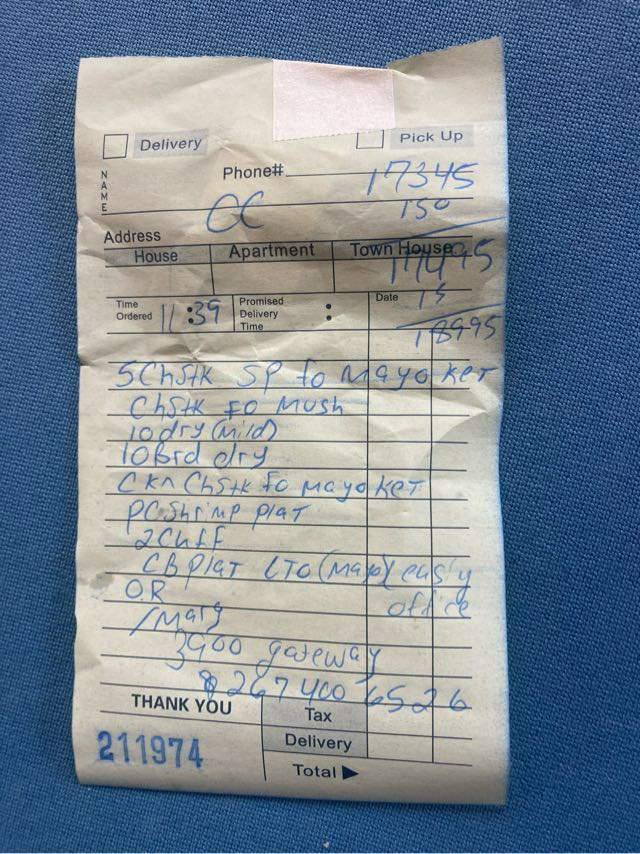 Delivery Pick Up
NAME
Phone# 17345
CC 150
Address
House Apartment Town House 17495
15
Time Ordered 11:39 Promised Delivery Time : Date
18995
5 Chstk SP fo mayo ket
Chstk fo mush
10 dry (mild)
10 Brd dry
Ckn Chstk fo mayo ket
PC Shrimp plat
2 Cuff
CB Plat LTO (mayo) easy
O.R office
/Marg
3900 gateway
267 400 6526
THANK YOU
Tax
211974
Delivery
Total ▶